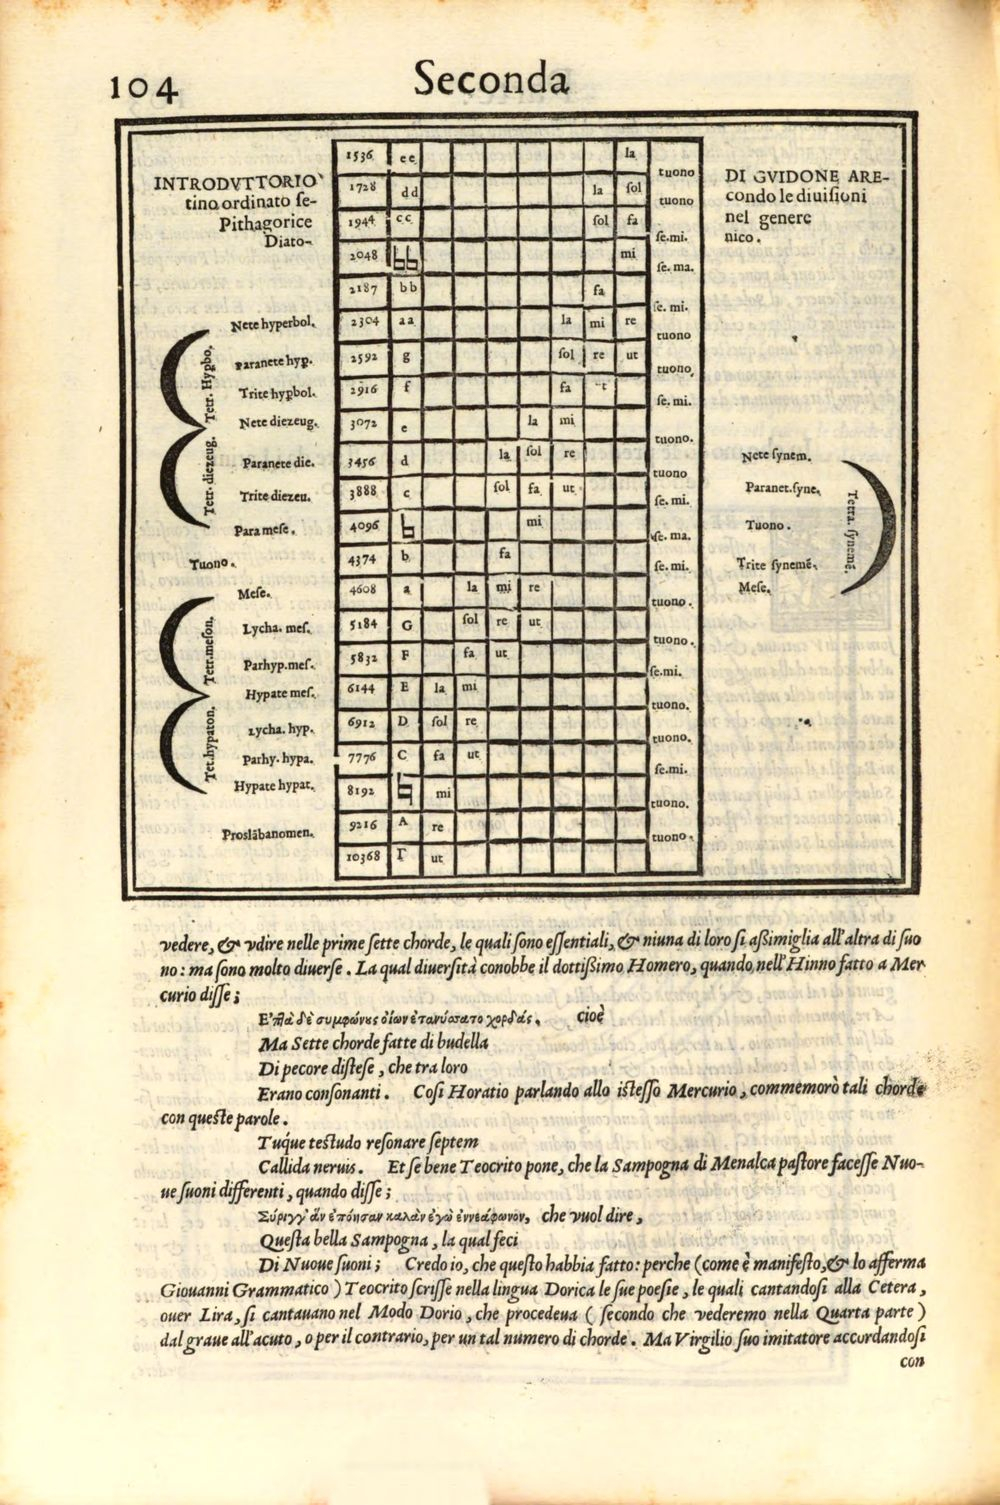 104
Seconda
INTRODVTTORIO DI GVIDONE ARE-
tino ordinato se- condo le diuisioni
Pithagorice nel genere
Diato- nico.
1536 ee la
tuono
1728 dd la sol
tuono
1944 cc sol fa
se.mi.
2048 ♮♮ mi
se. ma.
2187 bb fa
se. mi.
Nete hyperbol. 2304 aa la mi re
tuono
Paranete hyp. 2592 g sol re ut
tuono,
Trite hypbol. 2916 f fa
se. mi.
Nete diezeug. 3072 e la mi
tuono.
Paranete die. 3456 d la sol re Nete synem.
tuono
Trite diezeu. 3888 c sol fa ut Paranet.syne.
se. mi.
Para mese. 4096 ♮ mi Tuono.
se. ma.
Tuono. 4374 b fa Trite synemē.
se. mi.
Mese. 4608 a la mi re Mese.
tuono.
Lycha. mes. 5184 G sol re ut
tuono.
Parhyp.mes. 5832 F fa ut
se.mi.
Hypate mes. 6144 E la mi
tuono.
Lycha. hyp. 6912 D sol re
tuono.
Parhy. hypa. 7776 C fa ut
se.mi.
Hypate hypat. 8192 ♮ mi
tuono.
Proslābanomen. 9216 A re
tuono.
10368 Γ ut
Tetr. Hypbo.
Tetr. diezeug.
Tetr.meson.
Tet.hypaton.
Tetra. synemē.
vedere, & vdire nelle prime sette chorde, le quali sono essentiali, & niuna di loro si aßimiglia all'altra di suo
no: ma sono molto diuerse. La qual diuersità conobbe il dottißimo Homero, quando nell'Hinno fatto a Mer
curio disse;
Ε'πὰ δὲ συμφώνους ὀΐων ἐτανύσατο χορδάς. cioè
Ma Sette chorde fatte di budella
Di pecore distese, che tra loro
Erano consonanti. Cosi Horatio parlando allo istesso Mercurio, commemorò tali chorde
con queste parole.
Tuq́ue testudo resonare septem
Callida neruis. Et se bene Teocrito pone, che la Sampogna di Menalca pastore facesse Nuo-
ue suoni differenti, quando disse;
Σύριγγ' ἃν ἐπόησαν καλὰν ἐγὼ ἐννεάφωνον, che vuol dire,
Questa bella Sampogna, la qual feci
Di Nuoue suoni; Credo io, che questo habbia fatto: perche (come è manifesto, & lo afferma
Giouanni Grammatico) Teocrito scrisse nella lingua Dorica le sue poesie, le quali cantandosi alla Cetera,
ouer Lira, si cantauano nel Modo Dorio, che procedeua (secondo che vederemo nella Quarta parte)
dal graue all'acuto, o per il contrario, per un tal numero di chorde. Ma Virgilio suo imitatore accordandosi
con